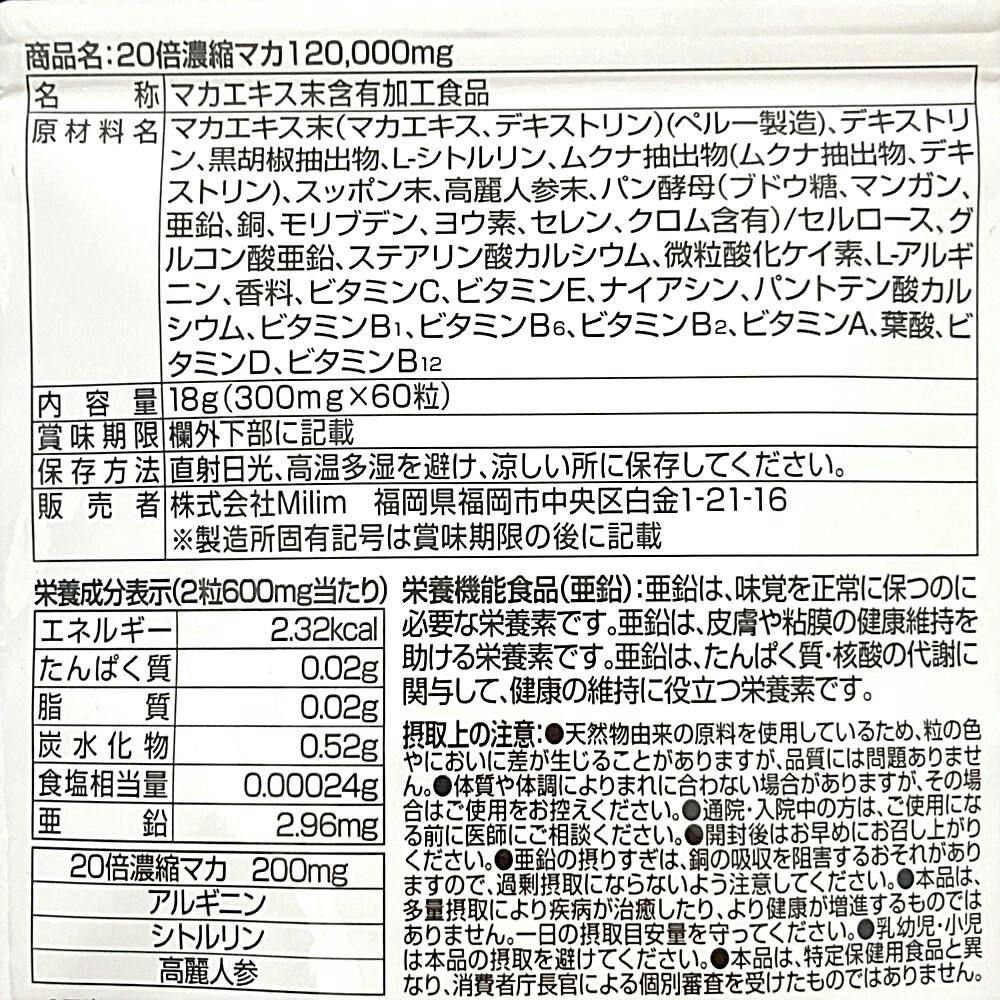 商品名:20倍濃縮マカ120,000mg
名称 マカエキス末含有加工食品
原材料名 マカエキス末(マカエキス、デキストリン)(ペルー製造)、デキストリ
ン、黒胡椒抽出物、L-シトルリン、ムクナ抽出物(ムクナ抽出物、デキ
ストリン)、スッポン末、高麗人参末、パン酵母(ブドウ糖、マンガン、
亜鉛、銅、モリブデン、ヨウ素、セレン、クロム含有)/セルロース、グ
ルコン酸亜鉛、ステアリン酸カルシウム、微粒酸化ケイ素、L-アルギ
ニン、香料、ビタミンC、ビタミンE、ナイアシン、パントテン酸カル
シウム、ビタミンB1、ビタミンB6、ビタミンB2、ビタミンA、葉酸、ビ
タミンD、ビタミンB12
内容量 18g(300mg×60粒)
賞味期限 欄外下部に記載
保存方法 直射日光、高温多湿を避け、涼しい所に保存してください。
販売者 株式会社Milim 福岡県福岡市中央区白金1-21-16
※製造所固有記号は賞味期限の後に記載
栄養成分表示(2粒600mg当たり)
エネルギー 2.32kcal
たんぱく質 0.02g
脂質 0.02g
炭水化物 0.52g
食塩相当量 0.00024g
亜鉛 2.96mg
20倍濃縮マカ 200mg
アルギニン
シトルリン
高麗人参
栄養機能食品(亜鉛):亜鉛は、味覚を正常に保つのに
必要な栄養素です。亜鉛は、皮膚や粘膜の健康維持を
助ける栄養素です。亜鉛は、たんぱく質・核酸の代謝に
関与して、健康の維持に役立つ栄養素です。
摂取上の注意:●天然物由来の原料を使用しているため、粒の色
やにおいに差が生じることがありますが、品質には問題ありませ
ん。●体質や体調によりまれに合わない場合がありますが、その場
合はご使用をお控えください。●通院・入院中の方は、ご使用にな
る前に医師にご相談ください。●開封後はお早めにお召し上がり
ください。●亜鉛の摂りすぎは、銅の吸収を阻害するおそれがあり
ますので、過剰摂取にならないよう注意してください。●本品は、
多量摂取により疾病が治癒したり、より健康が増進するものでは
ありません。一日の摂取目安量を守ってください。●乳幼児・小児
は本品の摂取を避けてください。●本品は、特定保健用食品と異
なり、消費者庁長官による個別審査を受けたものではありません。